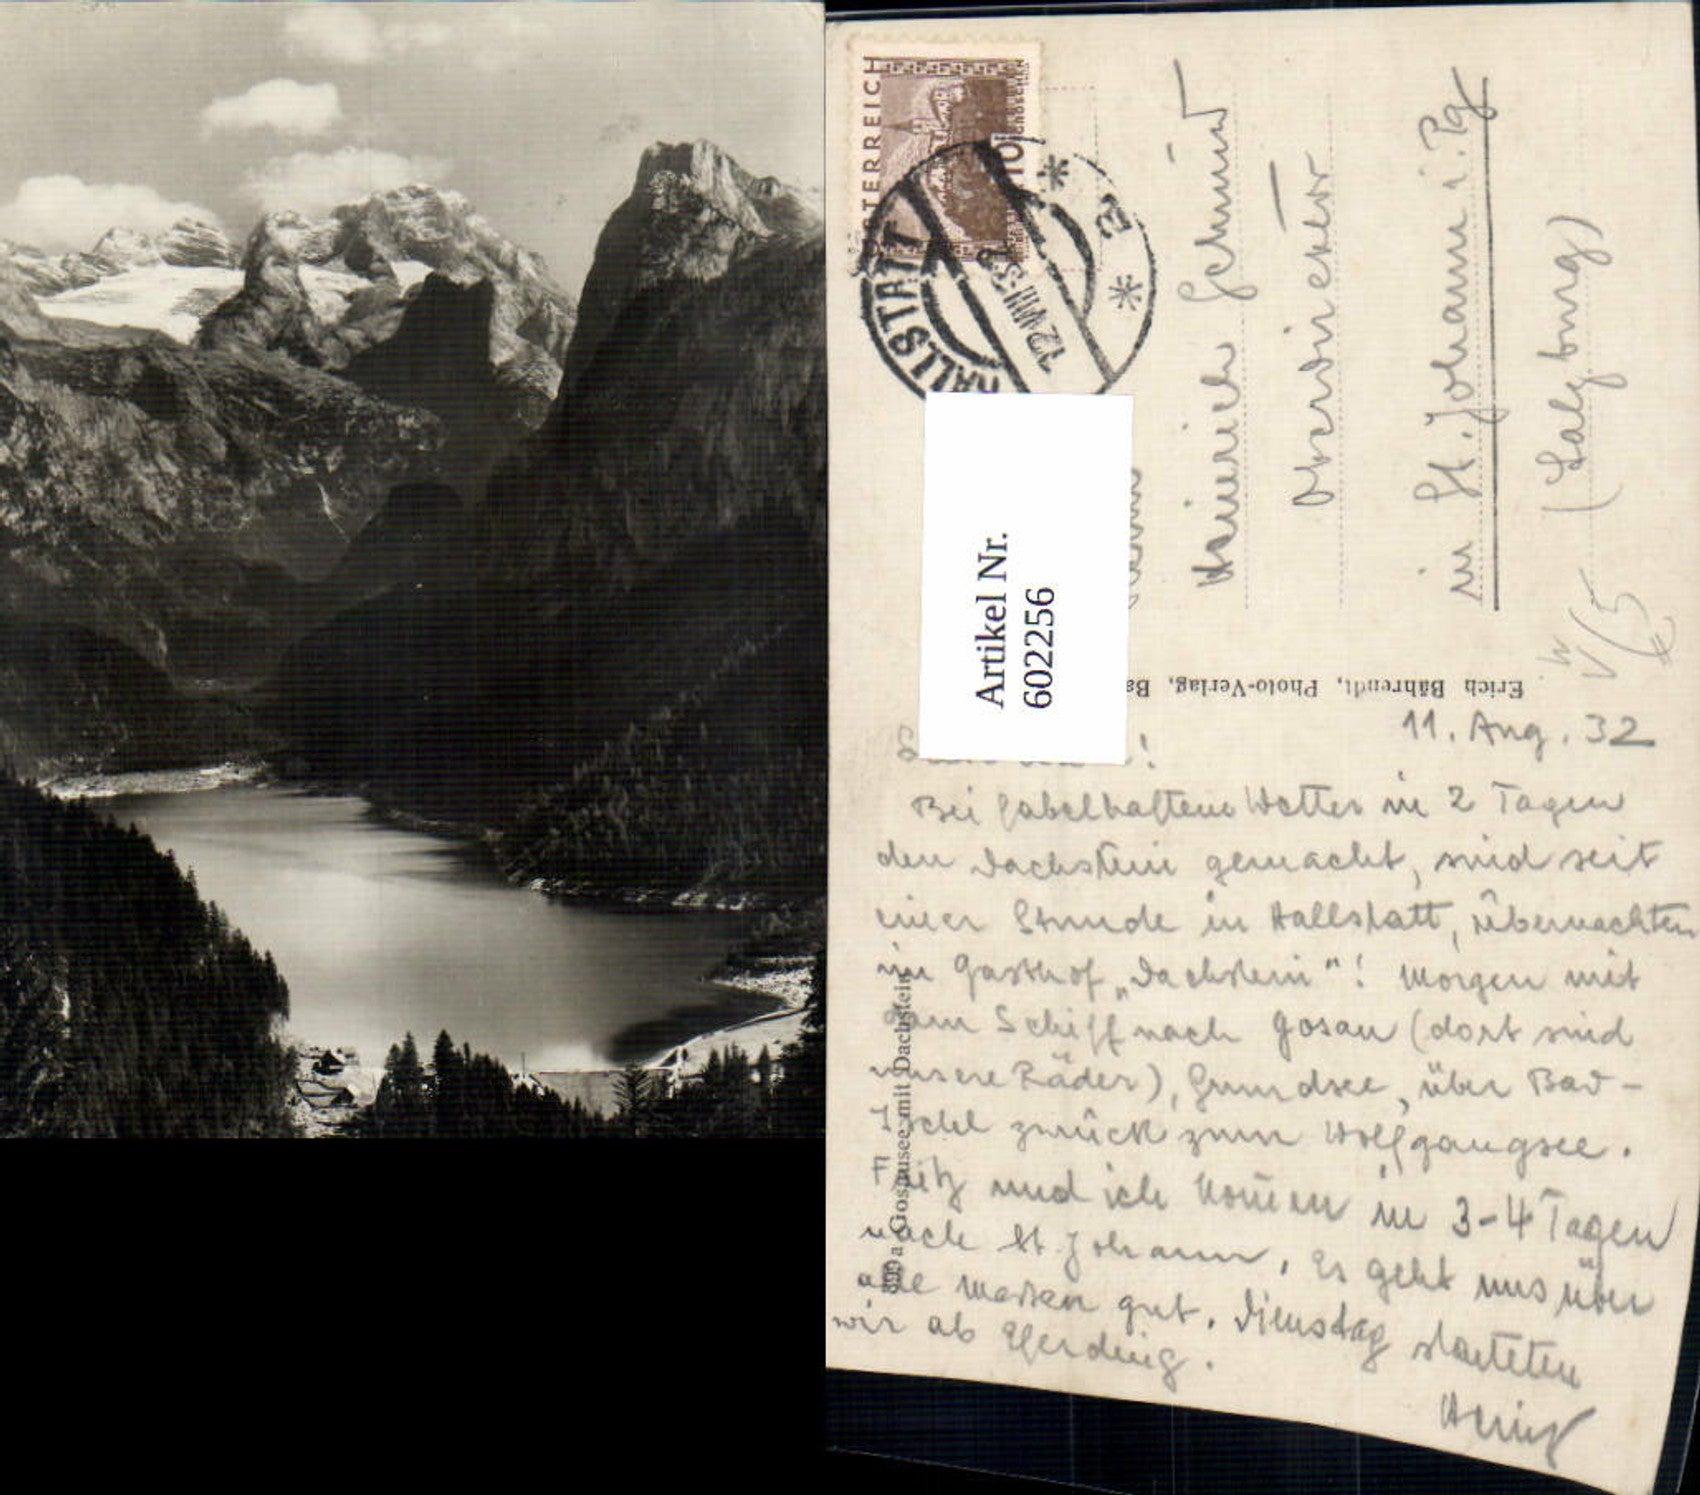 ÖSTERREICH
10
GROSCHEN
HALLSTATT
12.VIII
* B *
Artikel Nr.
602256
Heinrich Schmid
Oberdirektor
in St. Johann i. Pg
(Salzburg)
Erich Bährendt, Photo-Verlag, Ba
899a Gosausee mit Dachstein
11. Aug. 32
!
Bei fabelhaftem Wetter in 2 Tagen
den Dachstein gemacht, sind seit
einer Stunde in Hallstatt, übernachten
im Gasthof „Dachstein"! Morgen mit
dem Schiff nach Gosau (dort sind
unsere Räder), Gmundsee, über Bad-
Ischl zurück zum Wolfgangsee.
Fritz und ich kom̄en in 3-4 Tagen
nach St. Johann. Es geht uns über
alle Massen gut. Dienstag starteten
wir ab Eferding.
Heinz